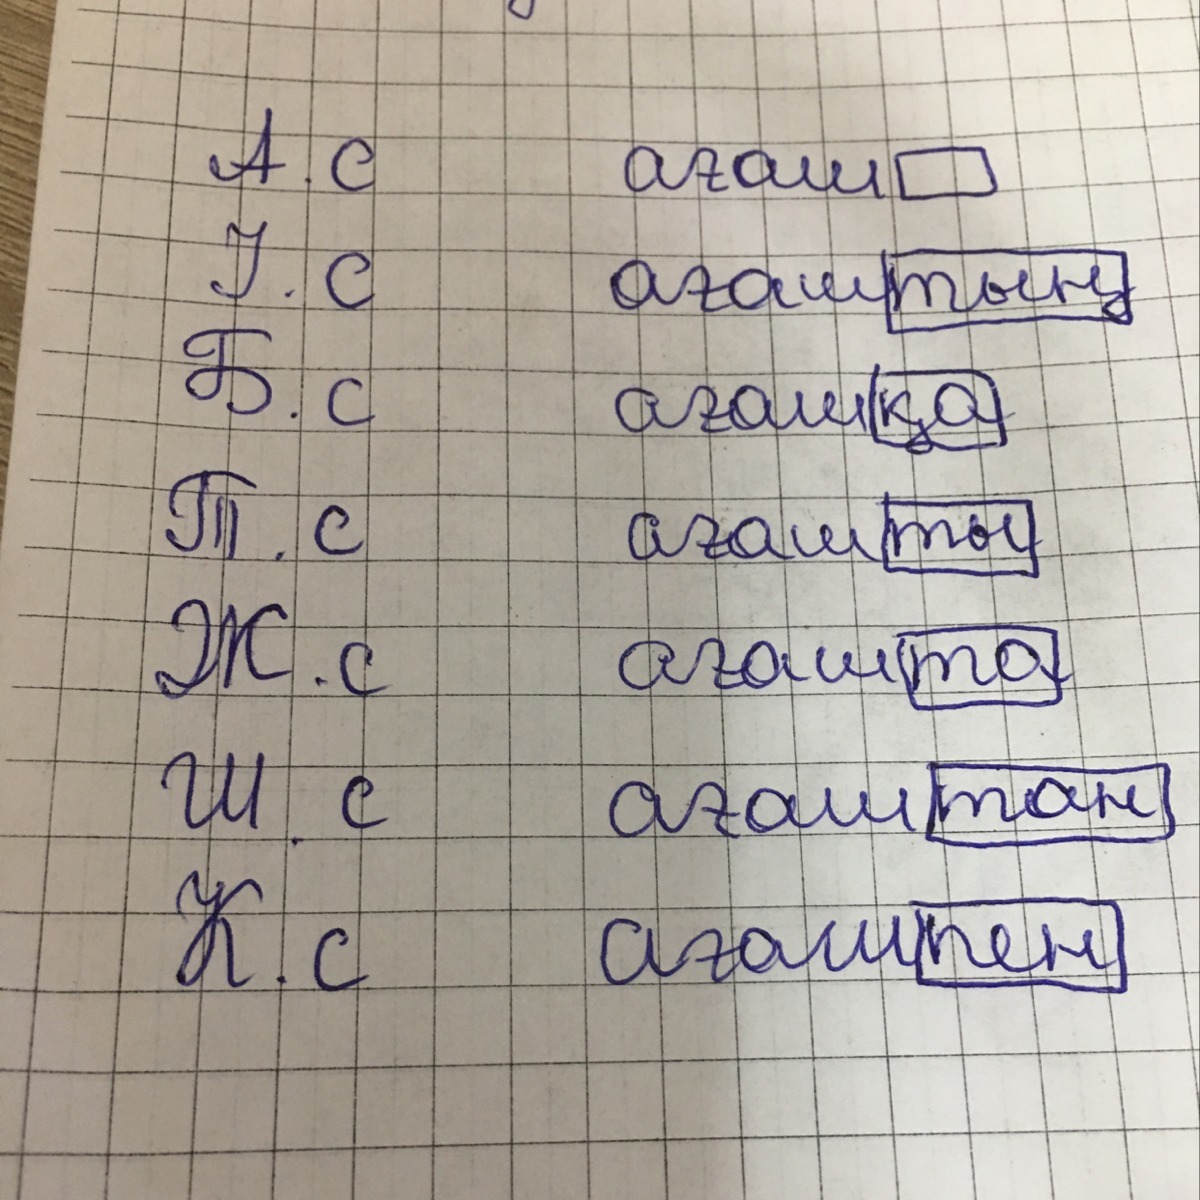 А.с ағаш
І.с ағаштың
Б.с ағашқа
Т.с ағашты
Ж.с ағашта
Ш.с ағаштан
К.с ағашпен